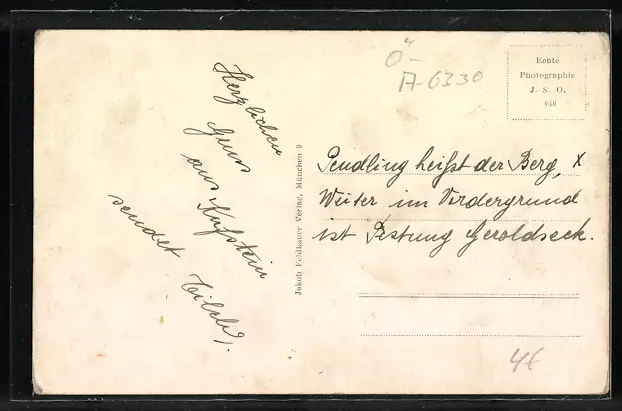 Herzlichen
Gruss
aus Kufstein
sendet
Ö-
A-6330
Echte
Photographie
J. S. O.
Jakob Feldbauer Verlag, München 9
Pendling heißt der Berg, x
Weiter im Vordergrund
ist Festung Geroldseck.
4€